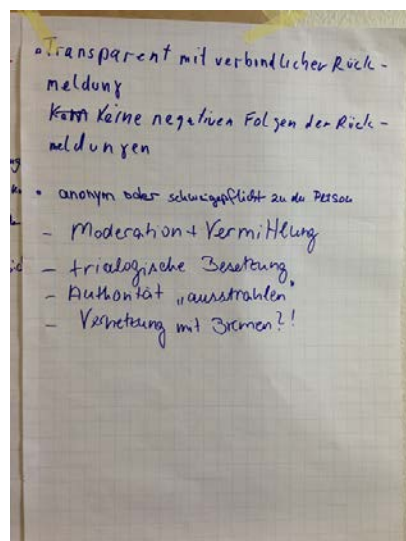 • Transparent mit verbindlicher Rück-
meldung
Keine negativen Folgen der Rück-
meldungen
• anonym oder schweigepflicht zu der Person
- Moderation + Vermittlung
- trialogische Besetzung
- Authorität „ausstrahlen"
- Vernetzung mit Bremen?!